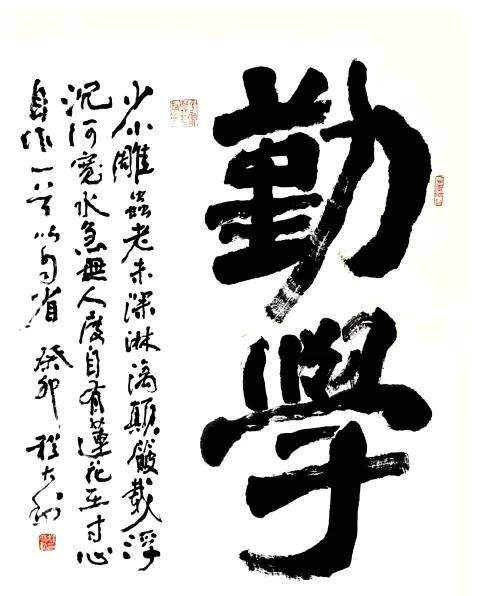 勤學
少小雕蟲老未深淋漓顛簸載浮
沉河寬水急無人度自有蓮花在寸心
自作一首以自省 癸卯 程大利